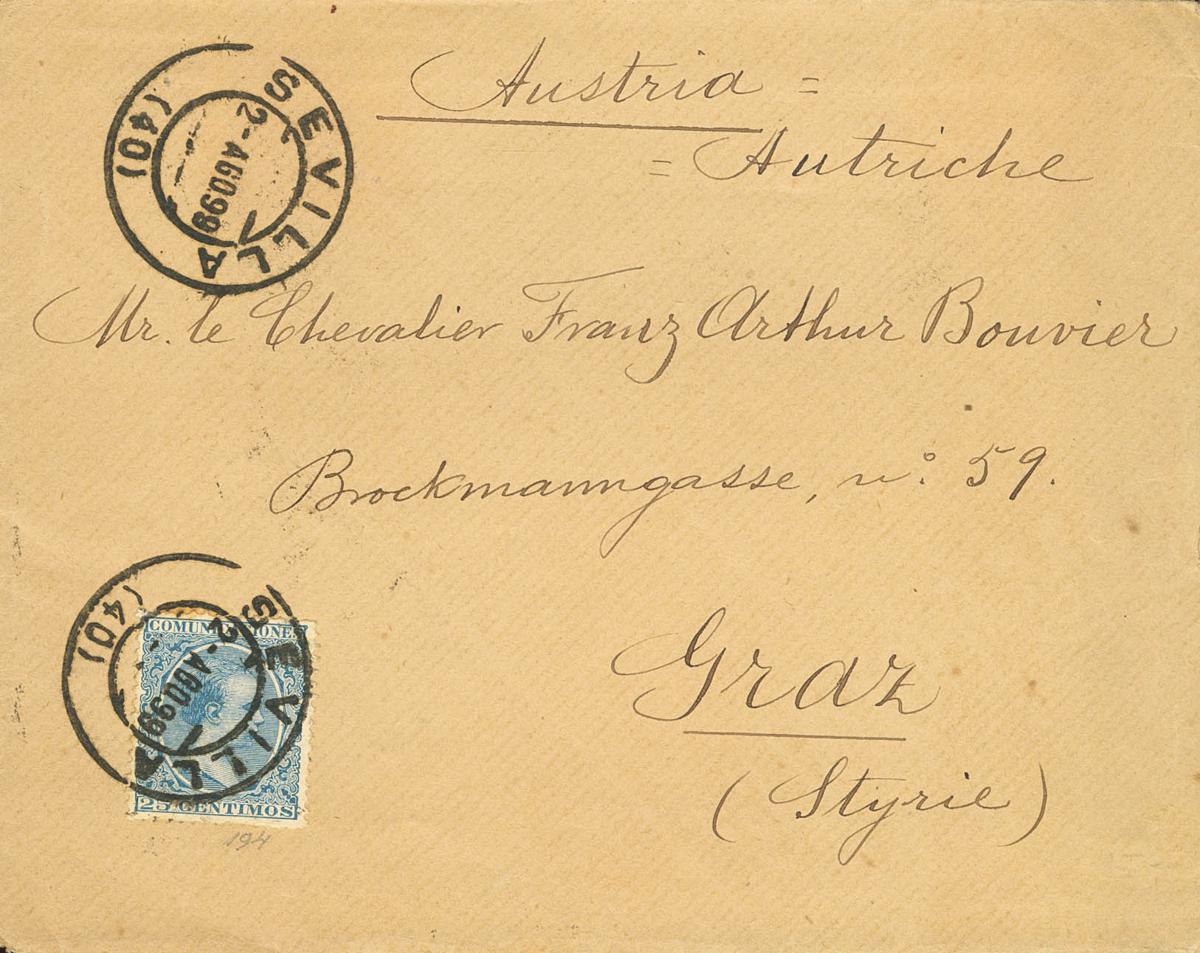 Austria =
= Autriche
SEVILLA
2-AGO.99
(40)
Mr. le Chevalier Franz Arthur Bouvier
Brockmanngasse, nº. 59.
Graz
(Styrie)
SEVILLA
2-AGO.99
(40)
COMUNICACIONES
25 CENTIMOS
194